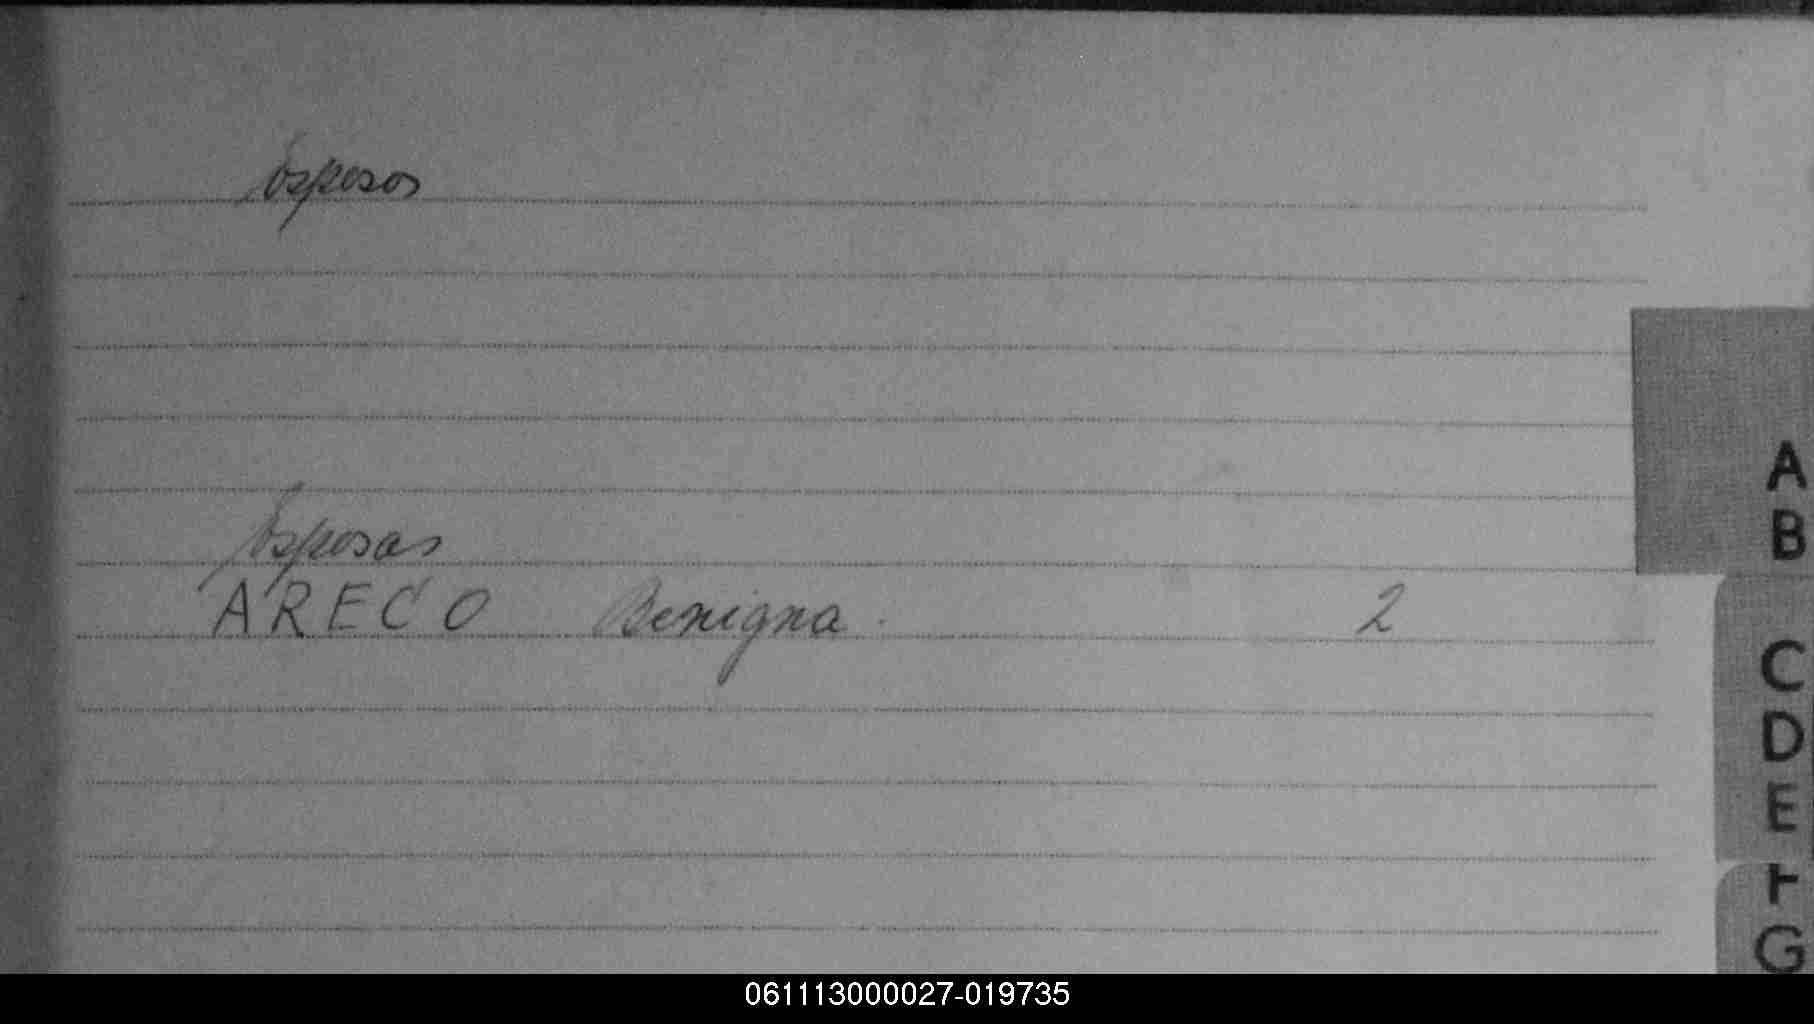 Esposos
Esposas
ARECO Benigna. 2
A
B
C
D
E
F
G
061113000027-019735